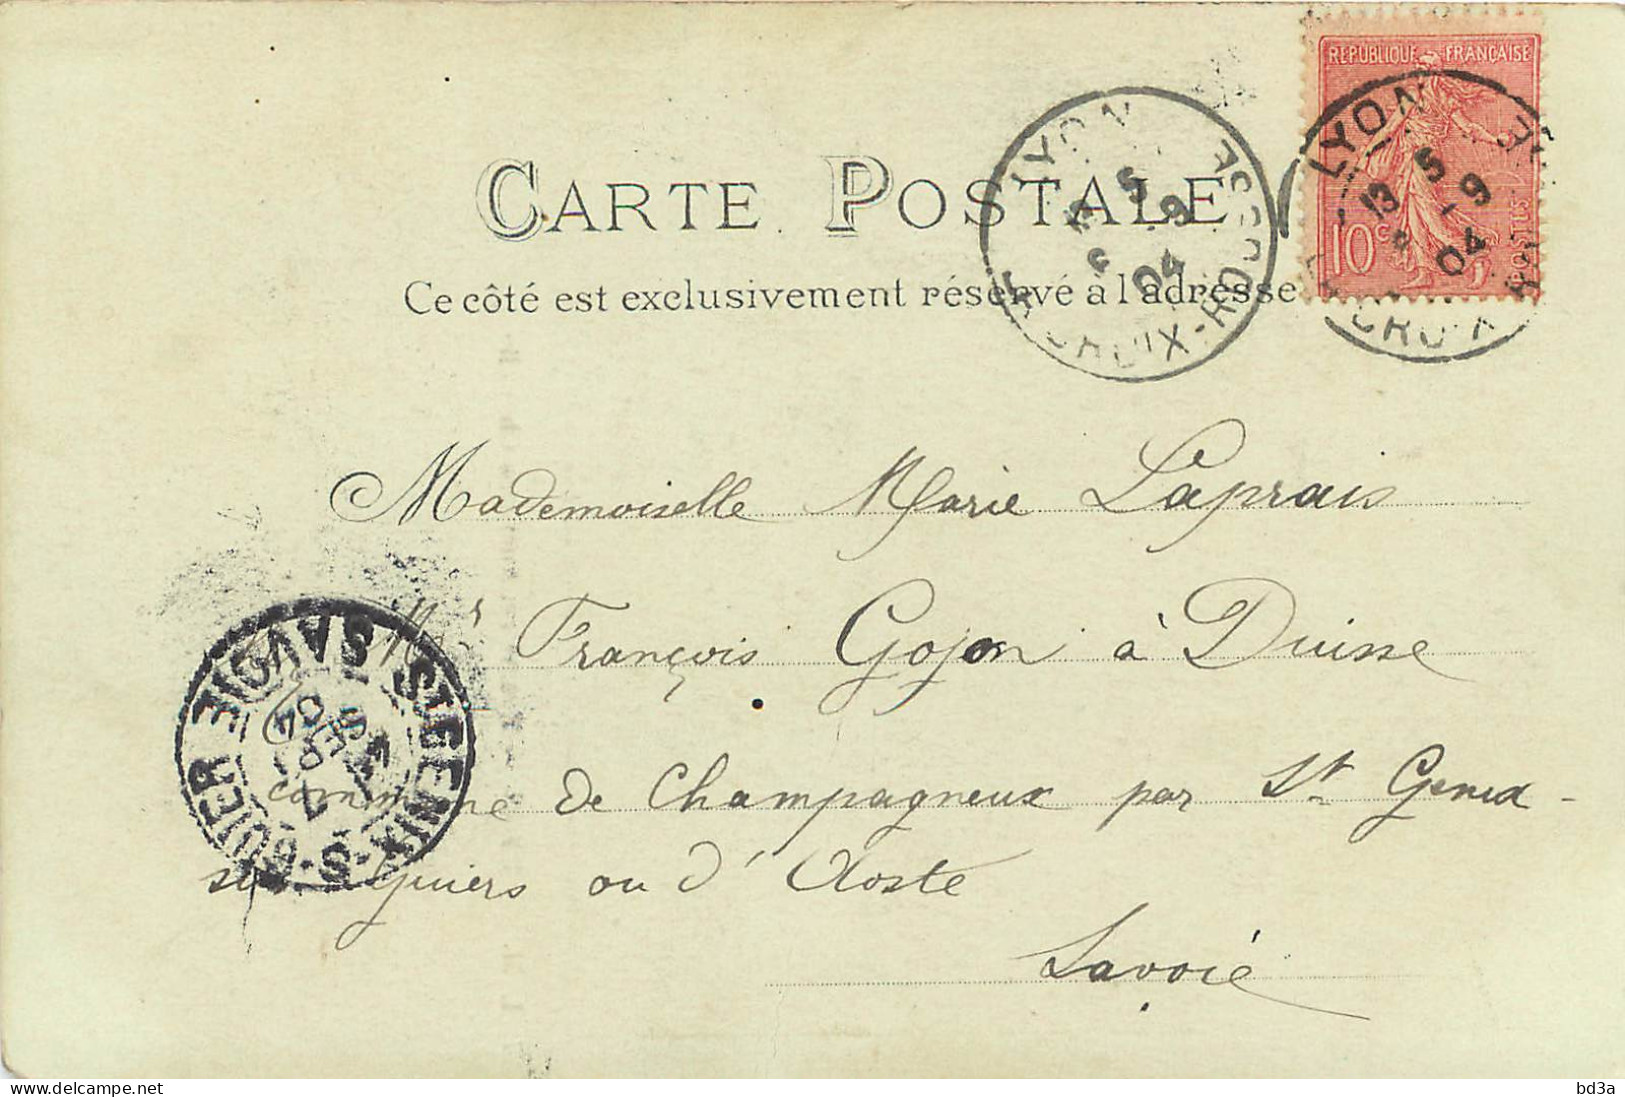 RÉPUBLIQUE FRANÇAISE
10c
POSTES
LYON
LA CROIX-ROUSSE
13 5 - 9 04
LYON
LA CROIX-ROUSSE
13 5 - 9 04
CARTE POSTALE
Ce côté est exclusivement réservé à l'adresse
Mademoiselle Marie Laprais
François Gojon à Duisse
commune de Champagneux par St Genix-
sur Guiers ou d'Aoste
Savoie
ST GENIX-S-GUIER SAVOIE
7 SEPT 04
delcampe.net
bd3a